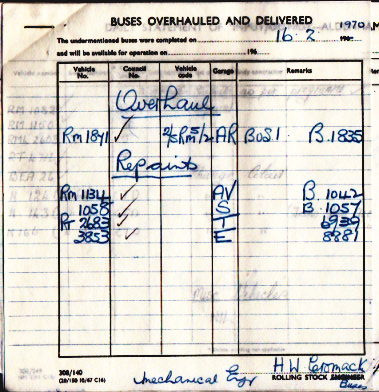 BUSES OVERHAULED AND DELIVERED
The undermentioned buses were completed on 16.2 1970
and will be available for operation on 196
Vehicle No. Council No. Vehicle code Garage Remarks
Overhaul
RM 1891 ✓ 2/5RM5/2 AR BOS1 B.1835
Repaints
RM 1134 ✓ AV B.1042
1058 ✓ S B.1057
R 2683 ✓ T 6939
3853 ✓ E 8881
308/140
Mechanical Engr
ROLLING STOCK ENGINEER
Buses